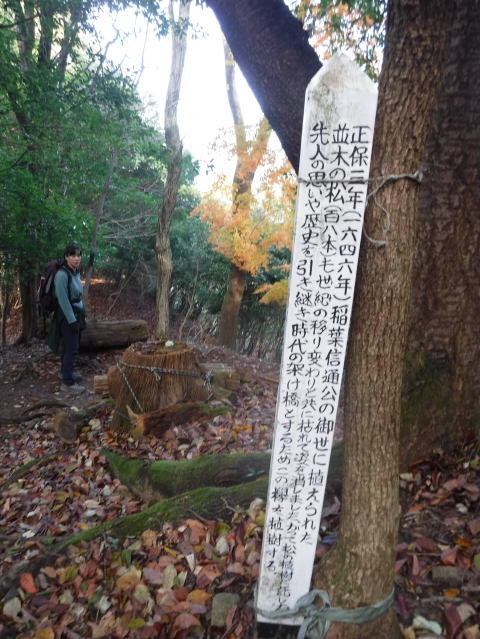 正保三年(一六四六年)稲葉信通公の御世に植えられた
並木の松百八本も世紀の移り変わりと共に枯れて姿を消しましたかつて松の植樹に託した
先人の思いや歴史を引き継ぎ時代の架け橋とするためこの欅を植樹する。